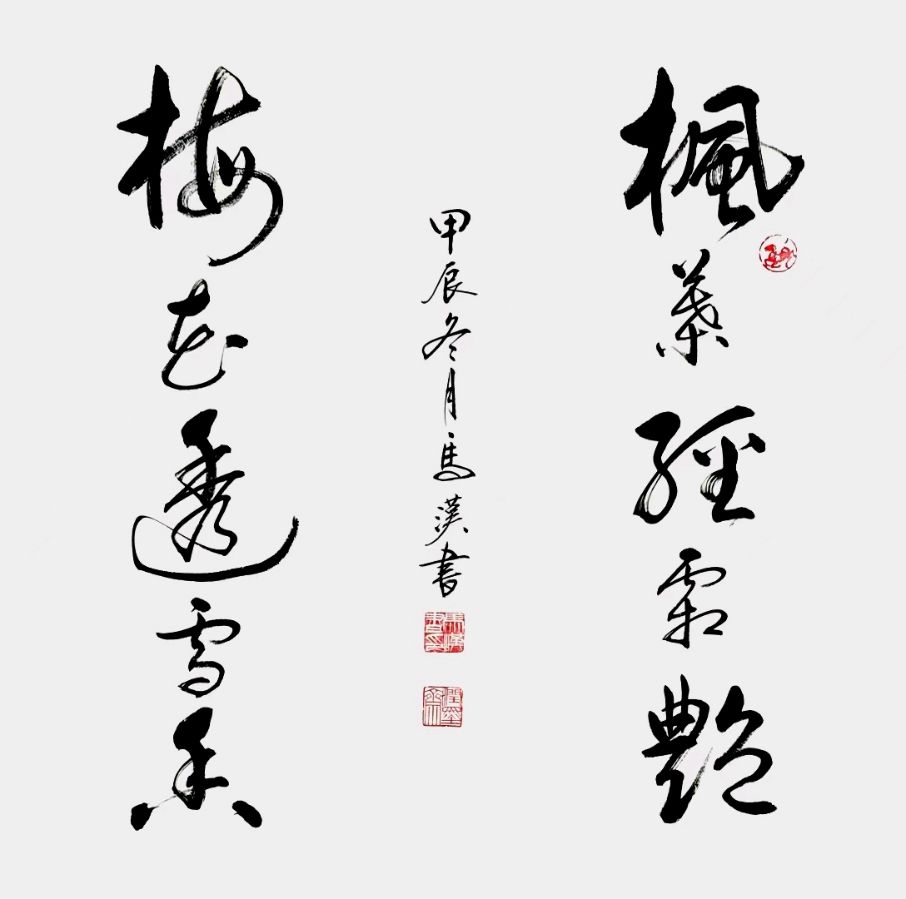 楓葉經霜艷
梅花透雪香
甲辰冬月馬漢書